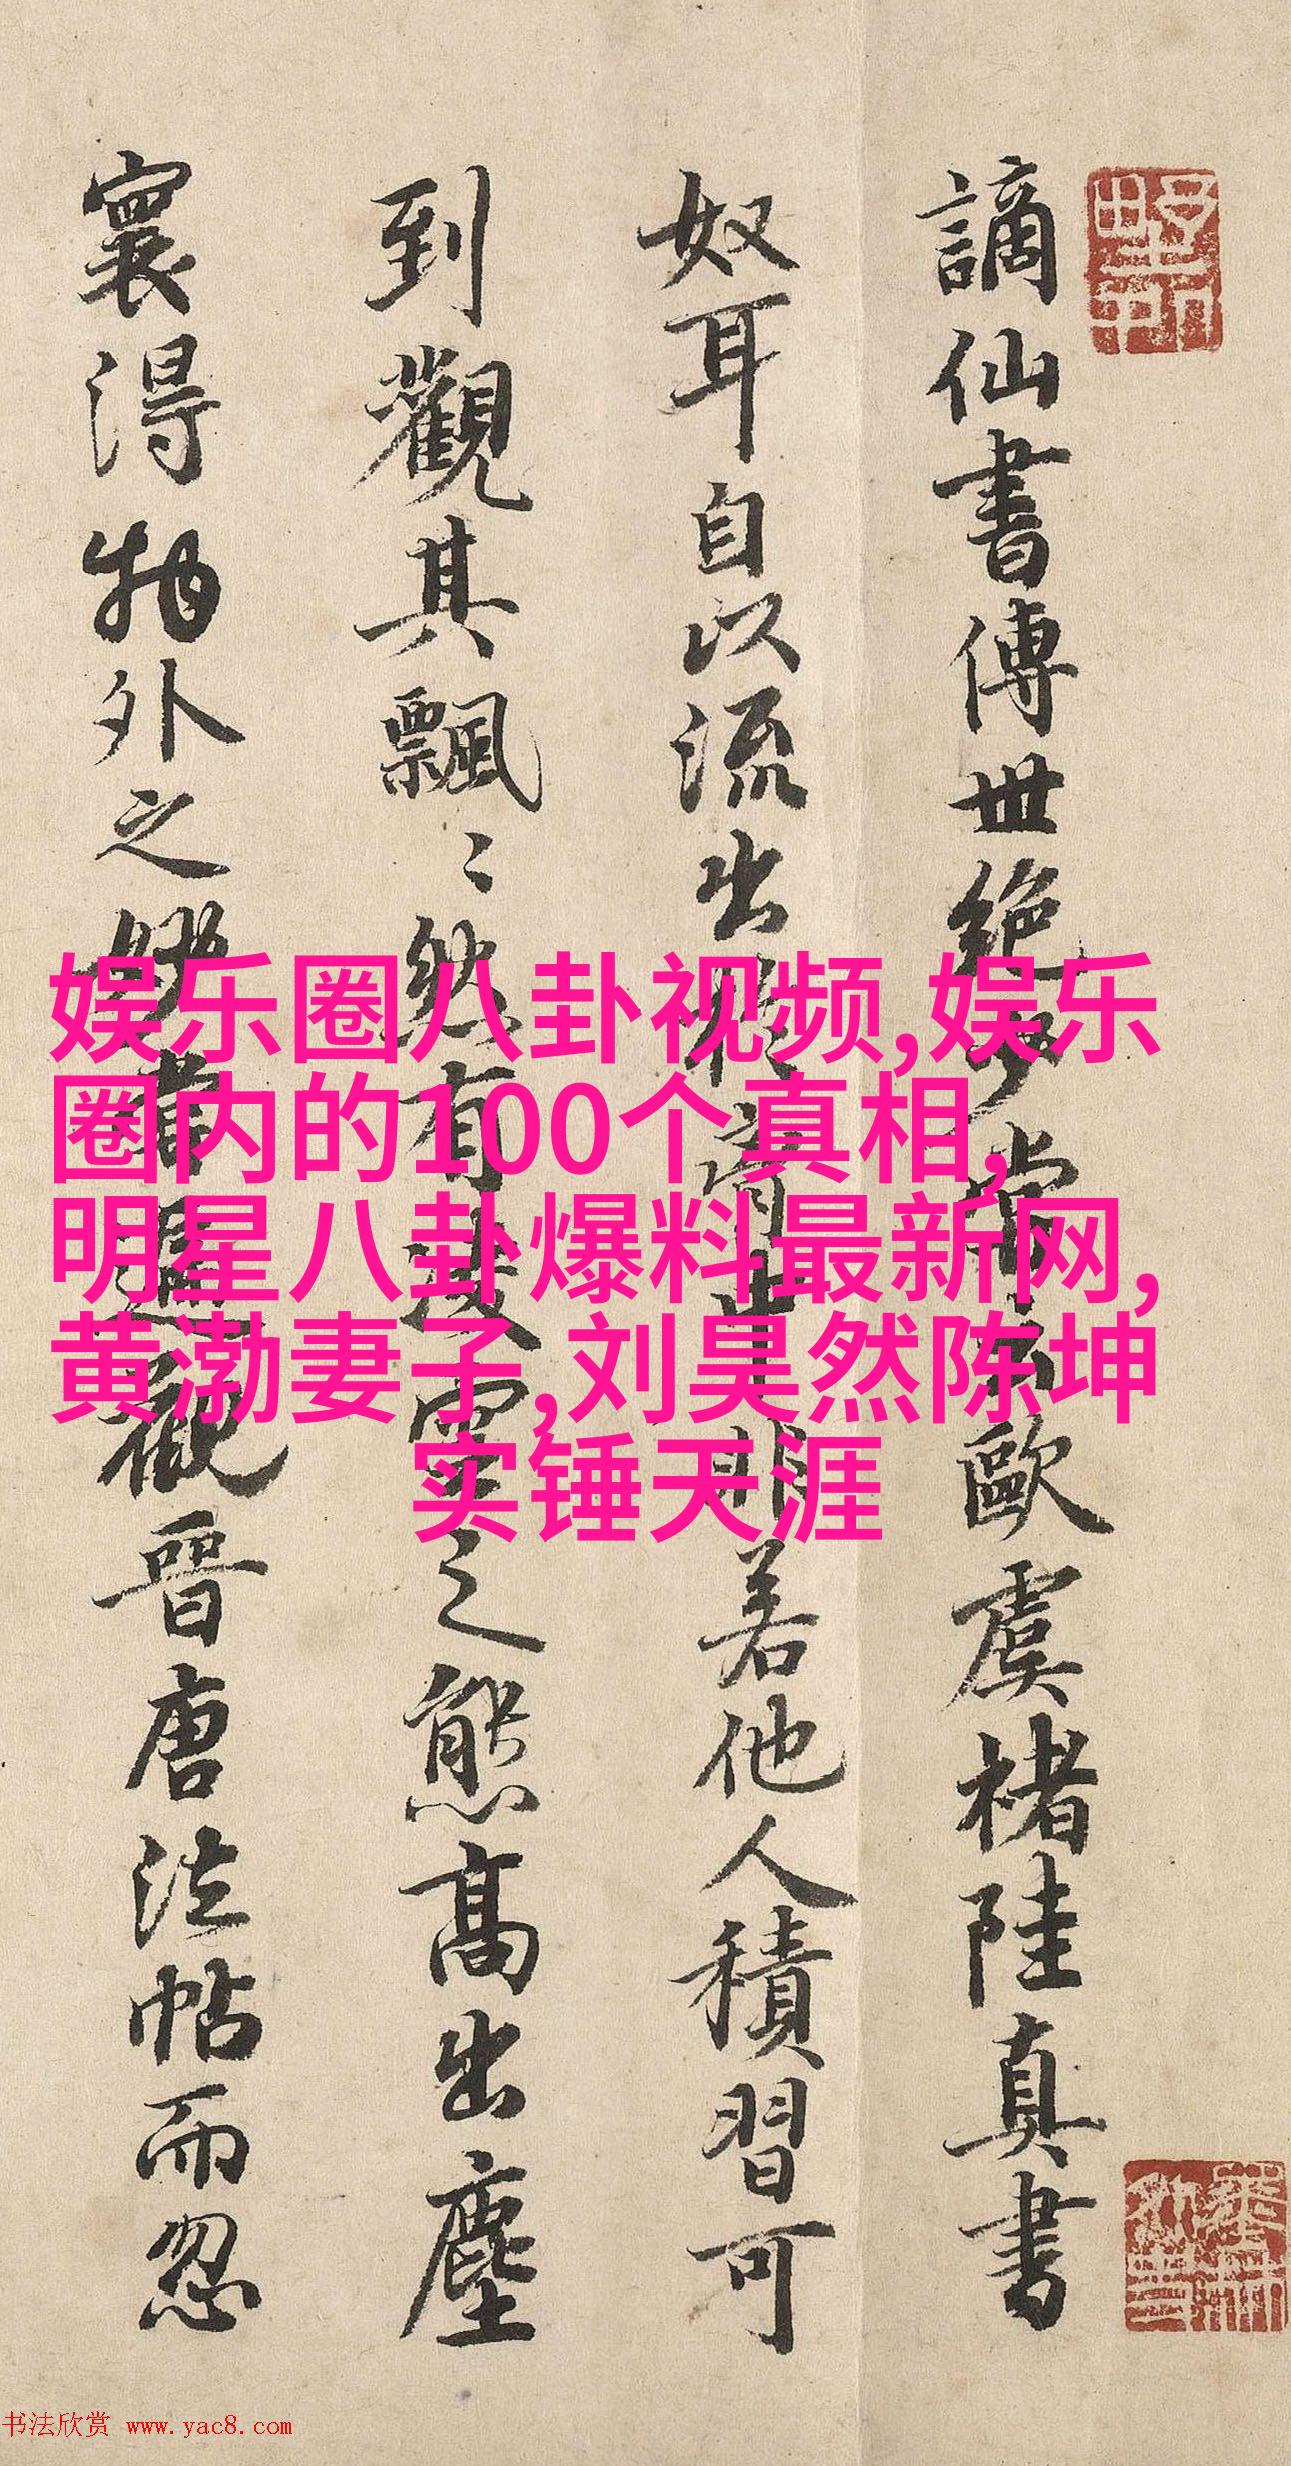 謫仙書傳世絕少嘗云歐虞褚陸真書
奴耳自以流出於胷中非若他人積習可
到觀其飄〻然有凌雲之態高出塵
寰得物外之妙嘗遍觀晉唐法帖而忽
娱乐圈八卦视频,娱乐
圈内的100个真相,
明星八卦爆料最新网,
黄渤妻子,刘昊然陈坤
实锤天涯
书法欣赏 www.yac8.com